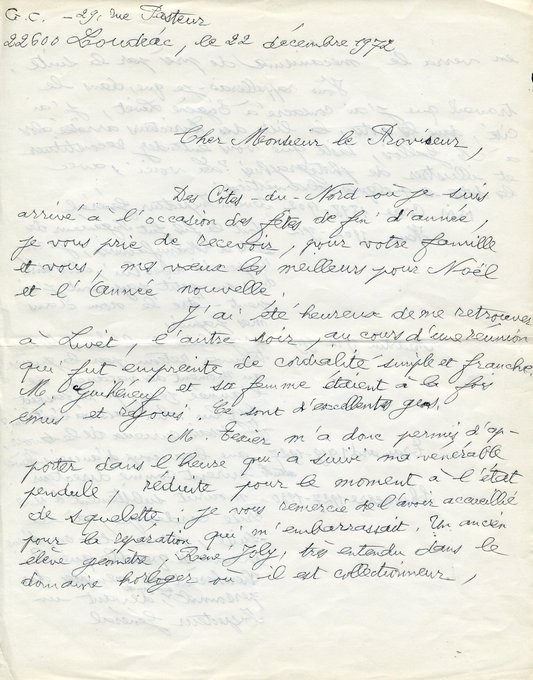 G.C. - 29, rue Pasteur
22600 Loudéac, le 22 décembre 1972
Cher Monsieur le Proviseur,
Des Côtes-du-Nord où je suis
arrivé à l'occasion des fêtes de fin d'année,
je vous prie de recevoir, pour votre famille
et vous, mes vœux les meilleurs pour Noël
et l'Année nouvelle.
J'ai été heureux de me retrouver
à Livet, l'autre soir, au cours d'une réunion
qui fut empreinte de cordialité simple et franche.
M. Guihéneuf et sa femme étaient à la fois
émus et réjouis. Ce sont d'excellents gens.
M. Texier m'a donc permis d'ap-
porter dans l'heure qui a suivi ma vénérable
pendule, réduite pour le moment à l'état
de squelette ; je vous remercie de l'avoir accueillie
pour la réparation qui m'embarrassait. Un ancien
élève géomètre, René Joly, très entendu dans le
domaine horloger où il est collectionneur,